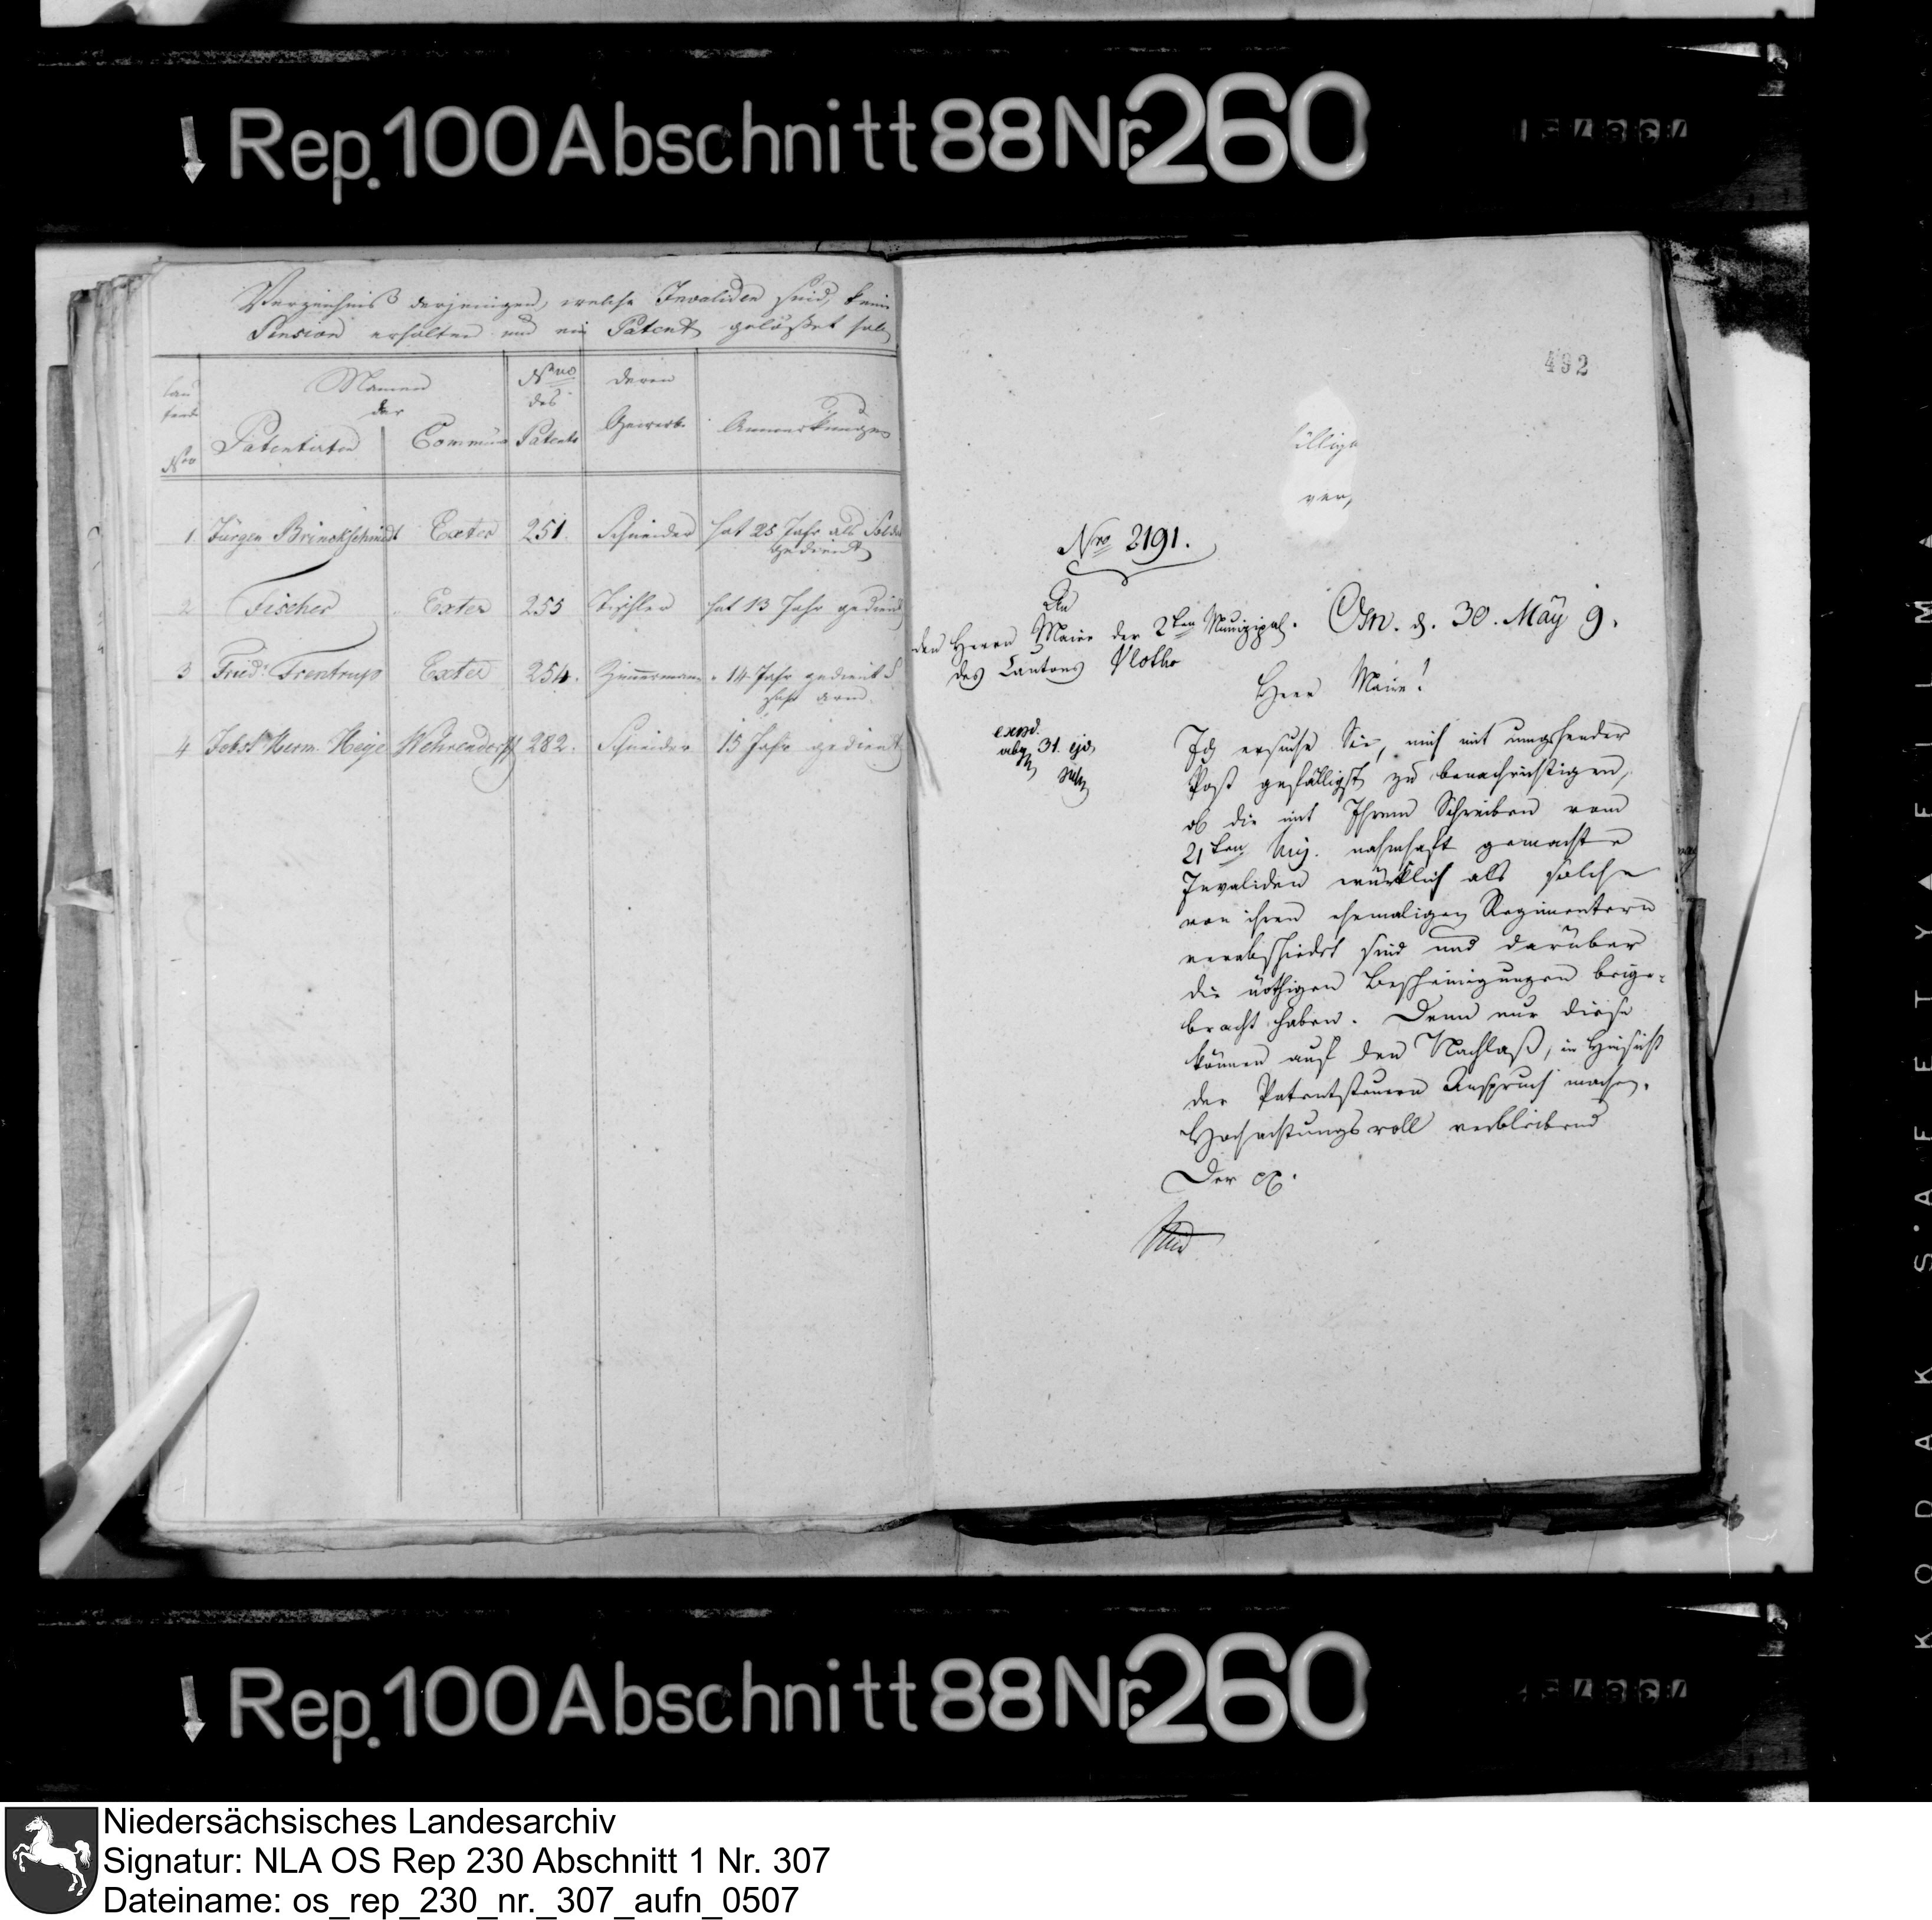 Rep. 100 Abschnitt 88 Nr. 260
Verzeichniß derjenigen, welche Invaliden sind, keine
Pension erhalten und ein Patent gelößet haben
lau
fende
Nro
Namen
der
Patentirten
Commune
Nro
des
Patents
deren
Gewerbe
Anmerkungen
1 Jürgen Brinckschmidt Exter 251. Schneider hat 25 Jahr als Soldat
gedient
2 Fischer Exter 255 Tischler hat 13 Jahr gedient
3 Fried. Trentrup Exter 254. Zimmermann 14 Jahr gedient
sehr arm.
4 Jobst Herm. Heye Wehrendorff 282. Schneider 15 Jahr gedient
492
ver,
Nro 2191.
An
den Herrn Maire der 2ten Munizipal.
des Cantons Vlotho
Osn. d. 30. May 9.
Herr Maire!
exped.
abg. 31. ejd.
Ich ersuche Sie, mich mit umgehender
Post gefälligst zu benachrichtigen,
ob die mit Ihrem Schreiben vom
21ten huj. nahmhaft gemachte
Invaliden würklich als solche
von ihren ehemaligen Regimentern
verabschiedet sind und darüber
die nöthigen Bescheinigungen beige-
bracht haben. Denn nur diese
können auf den Nachlaß, in Hinsicht
der Patentsteuern Anspruch machen.
Hochachtungsvoll verbleibend
Der pp.
Rep. 100 Abschnitt 88 Nr. 260
KODAK SAFETY FILM
Niedersächsisches Landesarchiv
Signatur: NLA OS Rep 230 Abschnitt 1 Nr. 307
Dateiname: os_rep_230_nr._307_aufn_0507